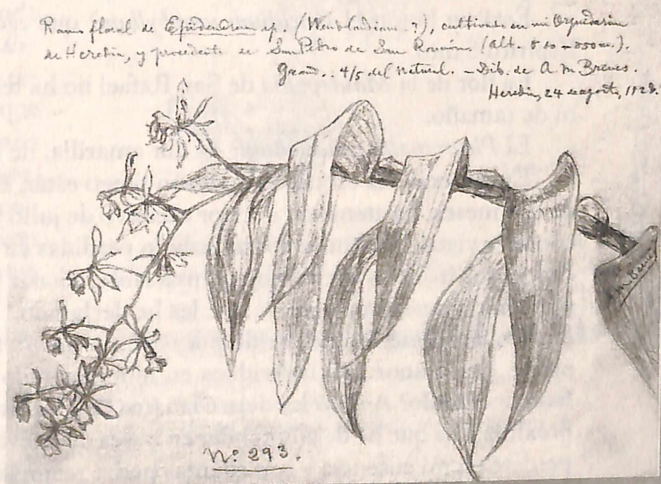 Ramo floral de Epidendrum sp. (Wendlandianum ?), cultivado en mi Orquideario
de Heredia, y procedente de San Pedro de San Ramón (alt. 800-850 m.).
Grand.. 4/5 del natural. - Dib. de A. M. Brenes.
Heredia, 24 agosto, 192
A. M. Brenes
No. 293.